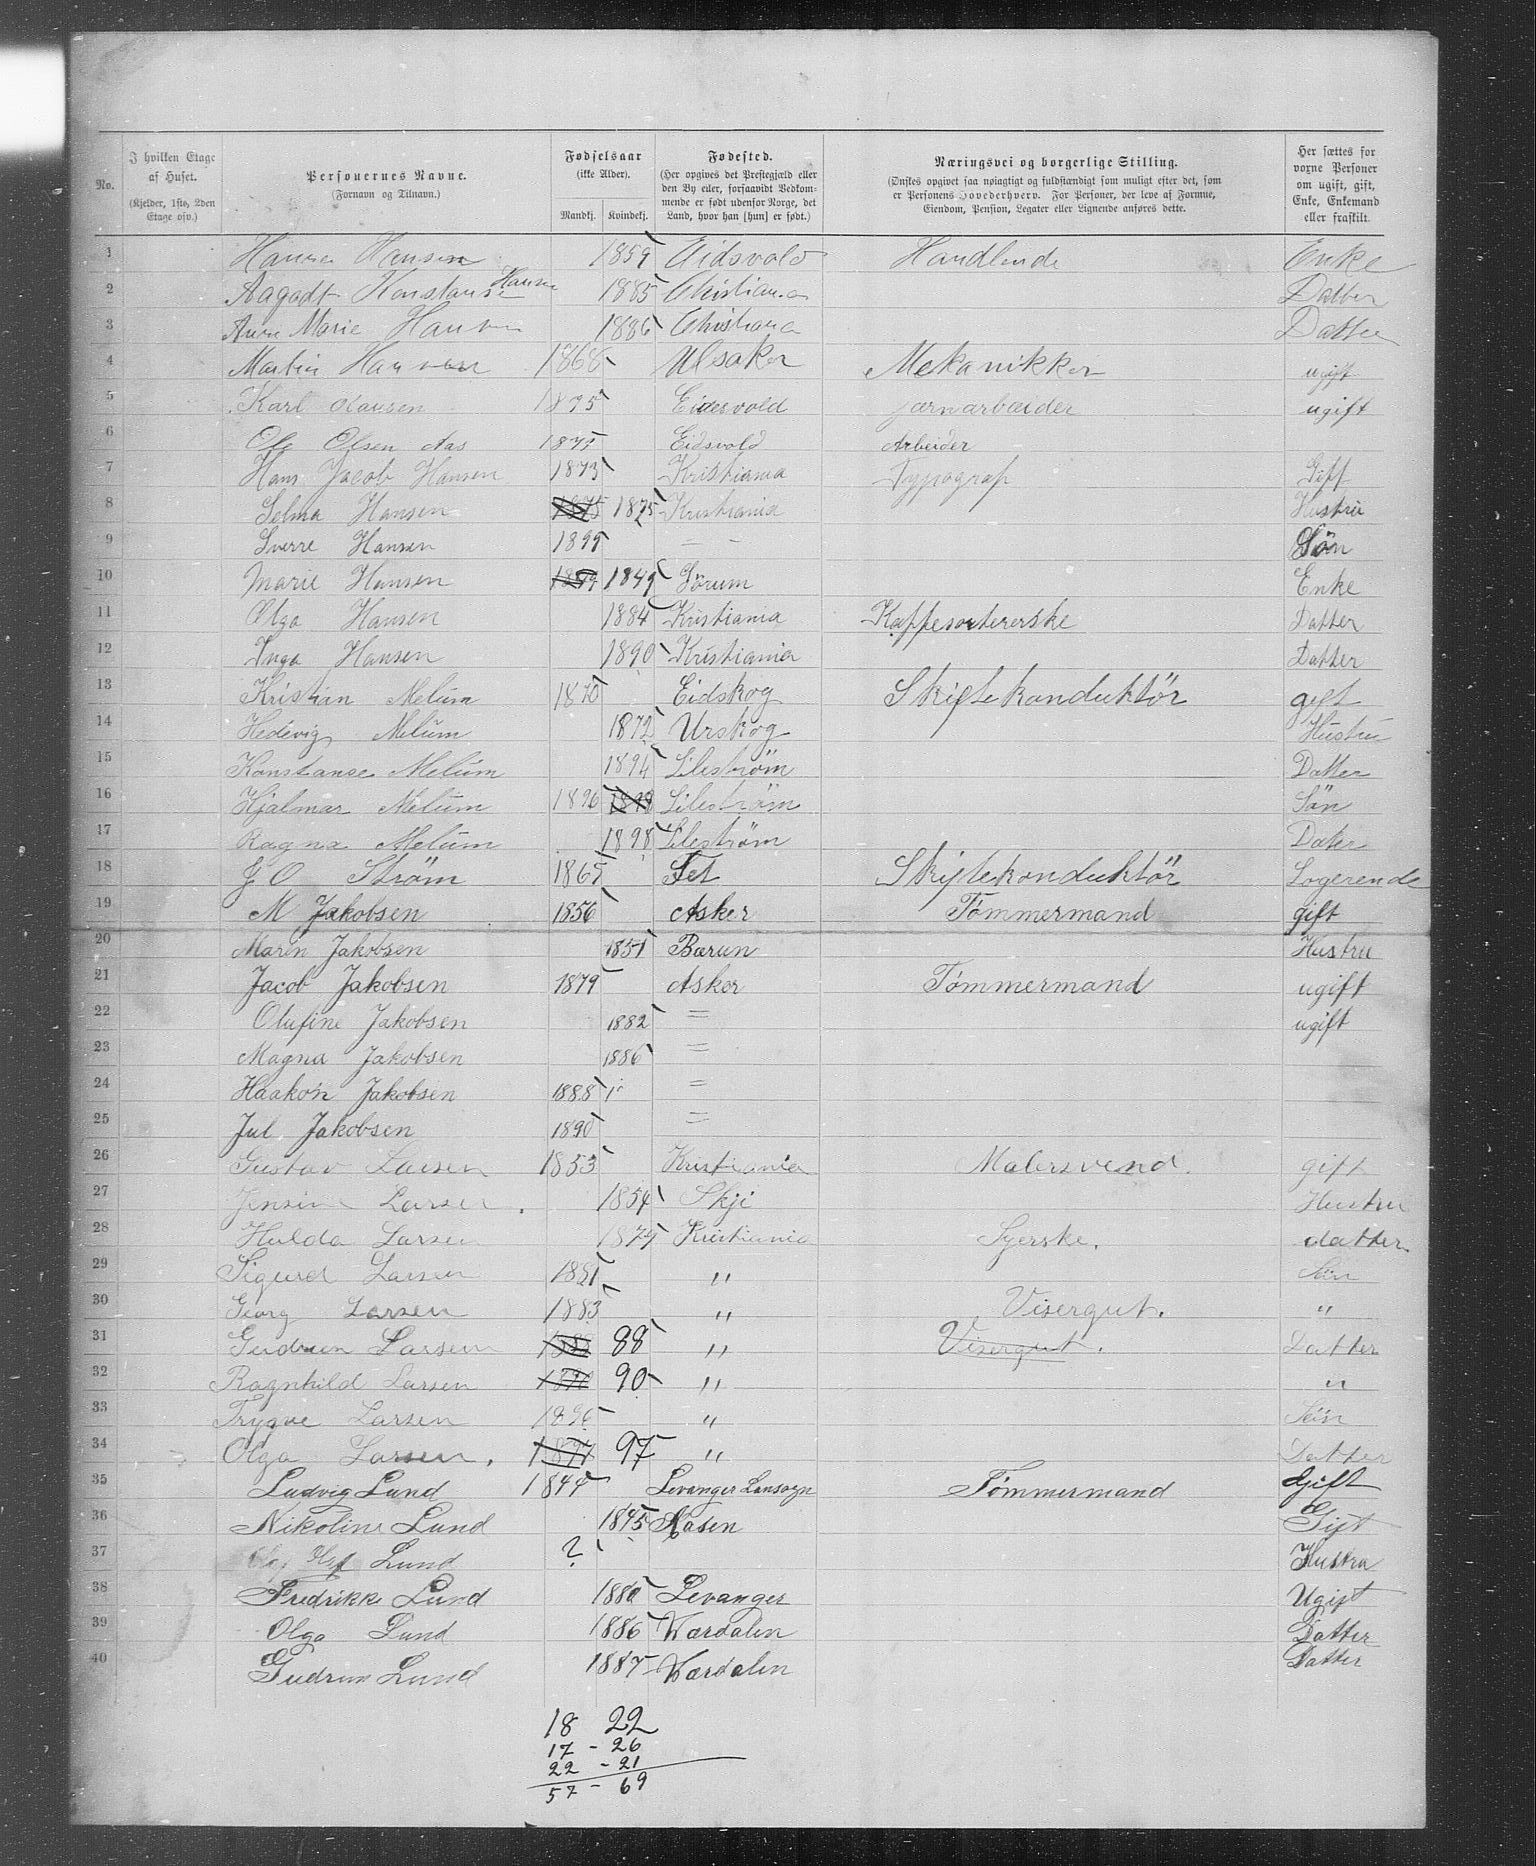 No.
I hvilken Etage af Huset. (Kjelder, 1ste, 2den Etage osv.)
Personernes Navne. (Fornavn og Tilnavn.)
Fødselsaar (ikke Alder). Mandkj. Kvindekj.
Fødested. (Her opgives det Prestegjæld eller den By eller, forsaavidt Vedkommende er født udenfor Norge, det Land, hvor han [hun] er født.)
Næringsvei og borgerlige Stilling. (Ønskes opgivet saa nøiagtigt og fuldstændigt som muligt efter det, som er Personens Hovederhverv. For Personer, der leve af Formue, Eiendom, Pension, Legater eller Lignende anføres dette.)
Her sættes for voxne Personer om ugift, gift, Enke, Enkemand eller fraskilt.
1 Hansen 1859 Eidsvold Handlende Enke
2 Aagodt Konstanse Hansen 1885 Christiania Datter
3 Anne Marie Hansen 1886 Christiana Datter
4 Martin Hansen 1868 Ulsaker Mekanikker ugift
5 Karl Hansen 1875 Eidesvold jærnarbeider ugift
6 Ole Olsen Aas 1873 Eidsvold Arbeider
7 Hans Jacob Hansen 1873 Kristiania Typograf Gift
8 Selma Hansen 1875 1875 Kristiania Hustru
9 Sverre Hansen 1899 — - Søn
10 Marie Hansen 1849 Sörum Enke
11 Olga Hansen 1884 Kristiania Kappesortererske Datter
12 Inga Hansen 1890 Kristiania Datter
13 Kristian Melum 1870 Eidskog Skiftekonduktör gift
14 Hedevig Melüm 1872 Urskog Hustru
15 Konstanse Melüm 1894 Lileström Datter
16 Hjalmar Melüm 1896 1898 Lileström Sön
17 Ragna Melüm 1898 Lileström Dater
18 G O Ström 1865 Fet Skiftekonduktör Logerende
19 M Jakobsen 1856 Asker Tømmermand gift
20 Maren Jakobsen 1851 Bærun Hustru
21 Jacob Jakobsen 1879 Asker Tømmermand ugift
22 Olufine Jakobsen 1882 = ugift
23 Magna Jakobsen 1886 =
24 Haakon Jakobsen 1888 =
25 Jul Jakobsen 1890 =
26 Gustav Larsen 1853 Kristiania Malersvend. gift
27 Jensine Larsen. 1854 Skji Hustru
28 Hulda Larsen 1879 Kristiania Syerske. datter
29 Sigurd Larsen 1881 " Sön
30 Georg Larsen 1883 " Visergut. "
31 Gudrun Larsen 1888 88 " Visergut. Datter
32 Ragnhild Larsen 1890 90 " "
33 Trygve Larsen 1896 " Sön
34 Olga Larsen. 1897 97 " Datter
35 Ludvig Lund 1844 Levanger Lansogn Tømmermand Gift
36 Nikoline Lund 1845 Aasen Gift
37 Lund ? Hustra
38 Fredrikke Lund 1880 Levanger Ugift
39 Olga Lund 1886 Værdalen Datter
40 Gudrun Lund 1887 Værdalen Datter
18 22
17 - 26
22 - 21
57 - 69